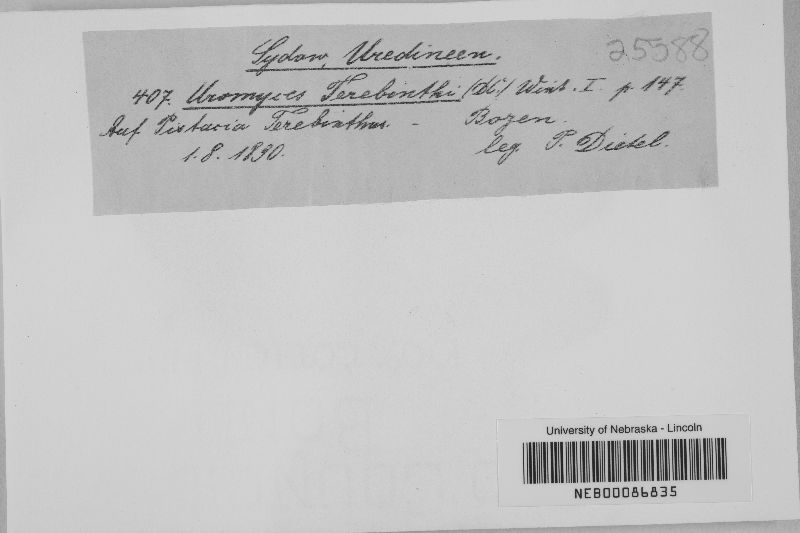 Sydow, Uredineen.
25588
407. Uromyces Terebinthi (DC.) Wint. I. p. 147.
Auf Pistacia Terebinthus. - Bozen.
1.8.1890. leg. P. Dietel.
University of Nebraska - Lincoln
NEB00086835